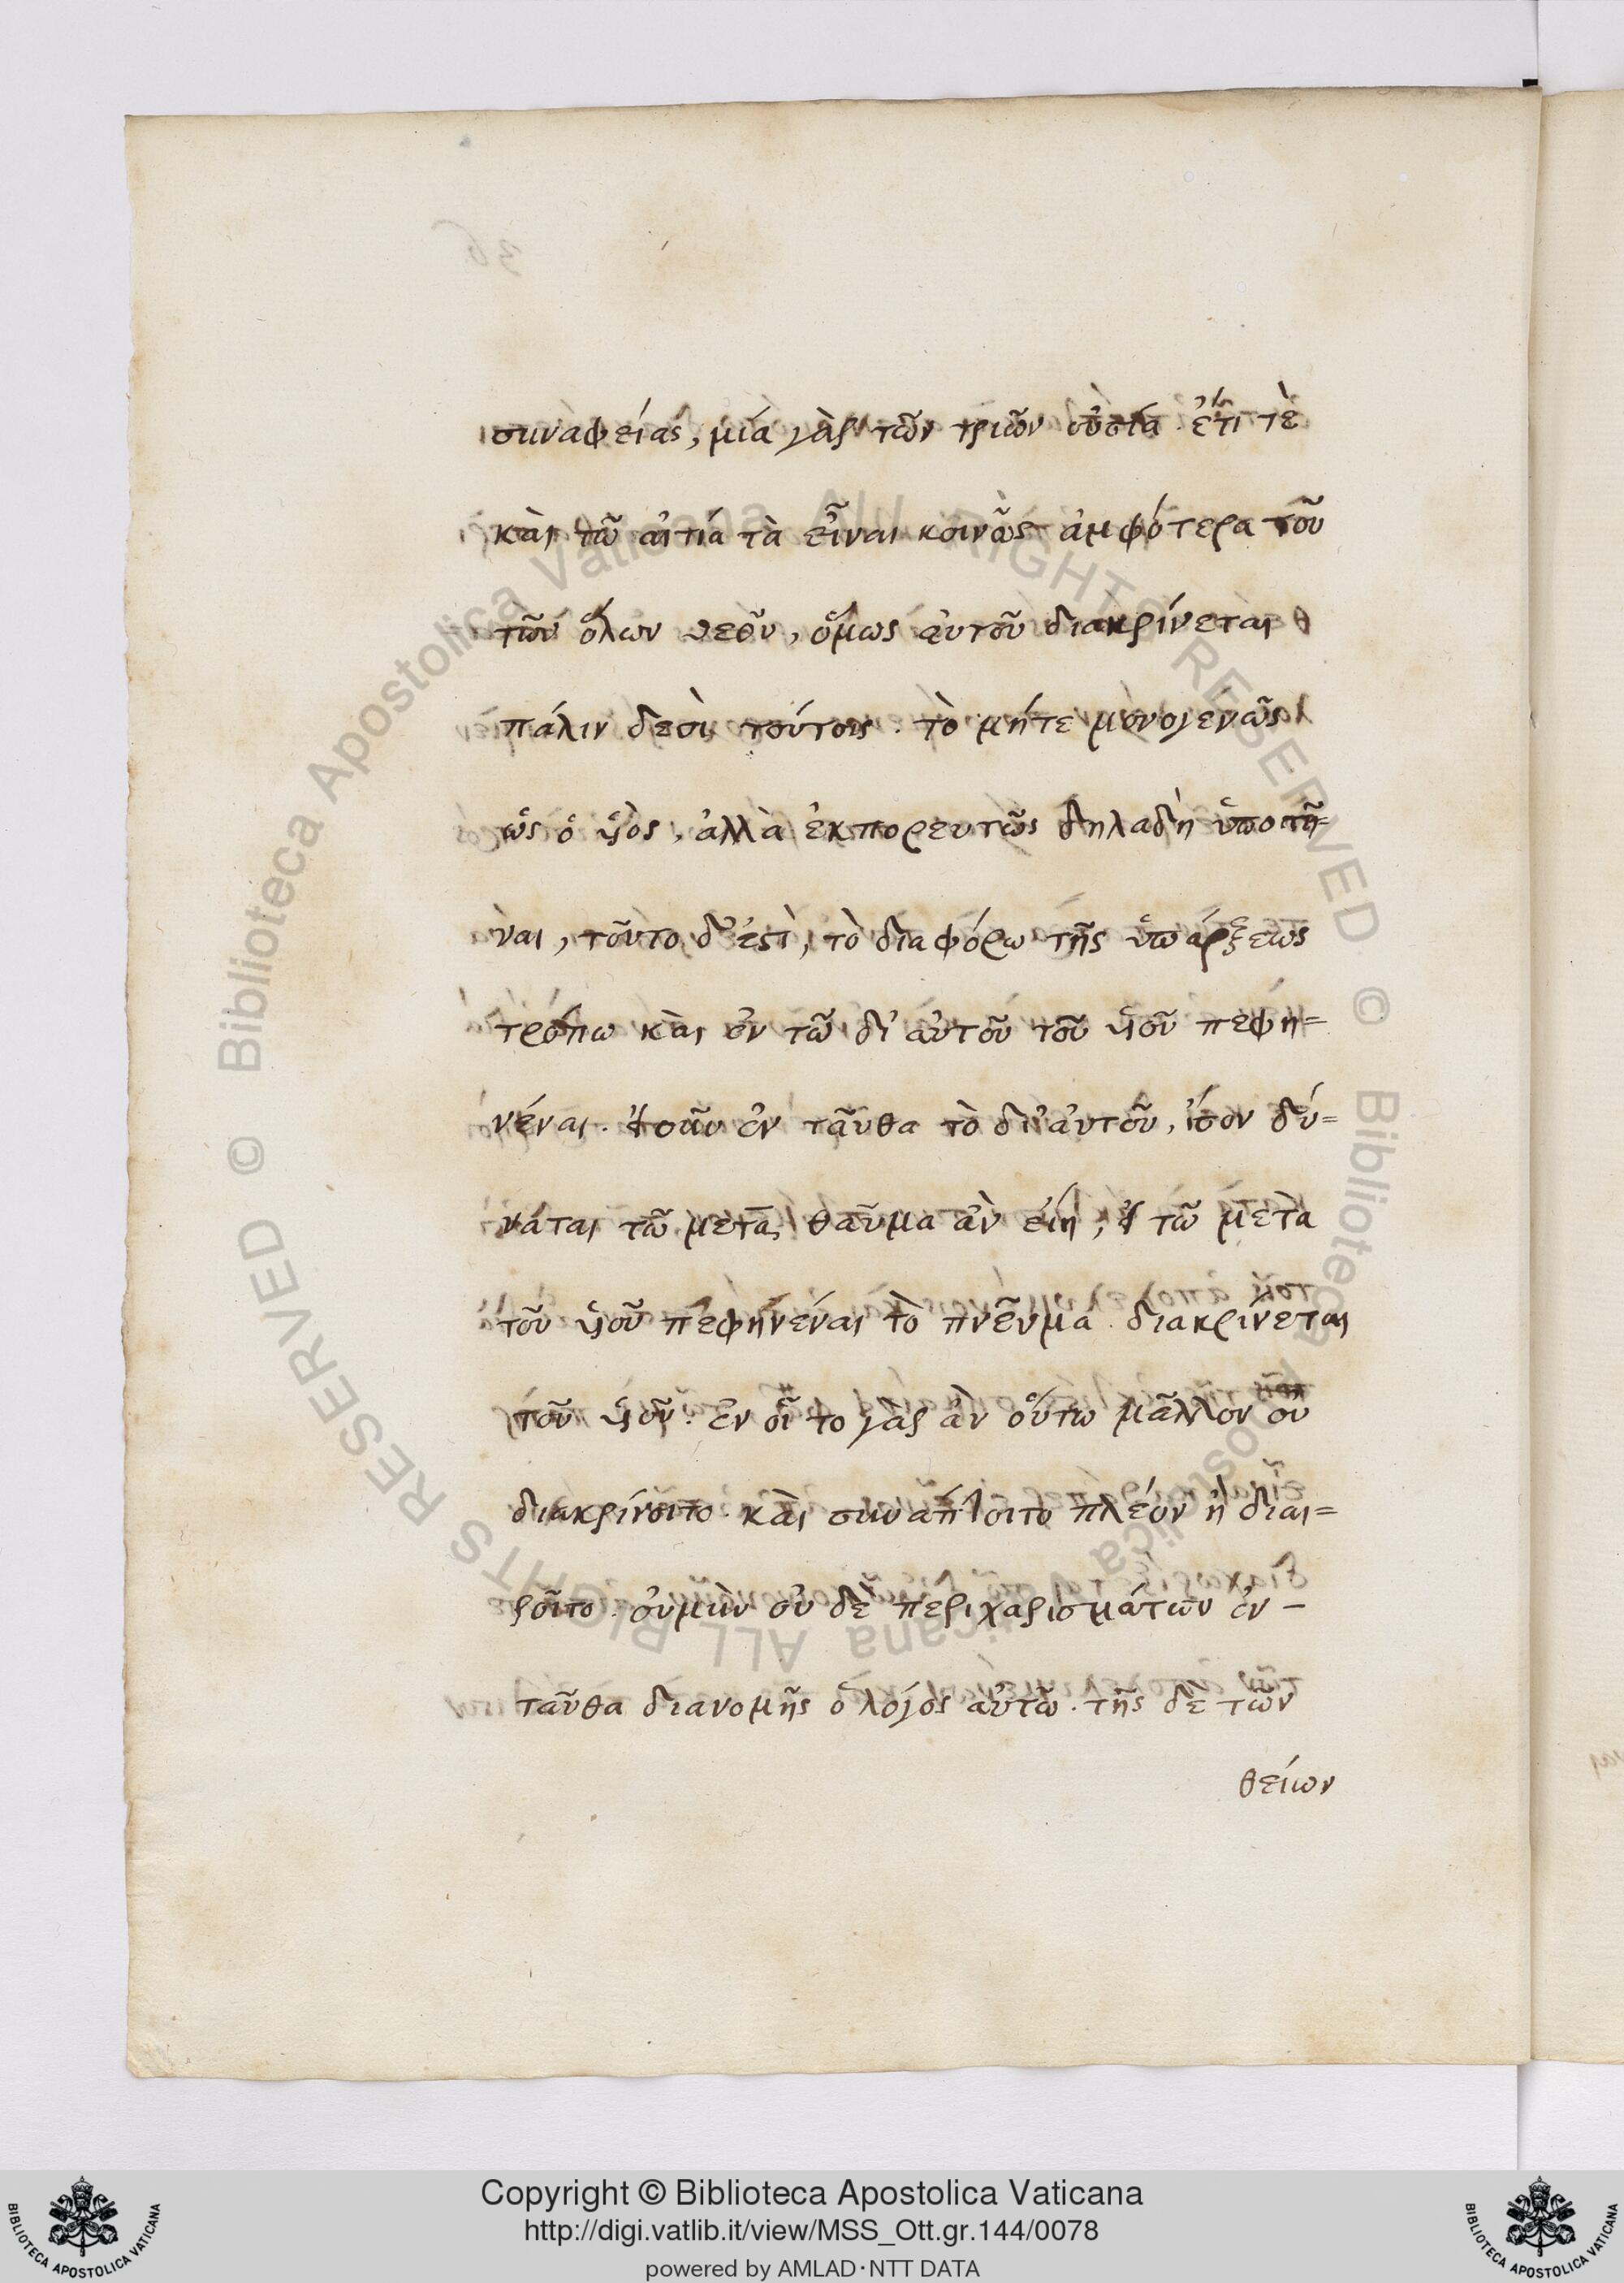 συναφείας, μία γὰρ τῶν τριῶν οὐσία. ἔτι τὲ
κὰι τῶ αἰτιά τὰ εἶναι κοινῶς ἀμφότερα τοῦ
τῶν ὅλων θεοῦ, ὅμως αὐτοῦ διακρίνεται
πάλιν δυσὶ τούτοις. τὸ μήτε μονογενῶς
ὡς ὁ υἱὸς, ἀλλὰ ἐκπορευτῶς δηλαδὴ ὑποστῆ=
ναι, τοῦτο δ' ἐστὶ, τὸ διαφόρω τῆς ὑπάρξεως
τρόπω κὰι ἐν τῶ δι' αὐτοῦ τοῦ υἱοῦ πεφη=
νέναι. ἐν ταῦθα τὸ δι' αὐτοῦ, ἴσον δύ=
ναται τῶ μετὰ, θαῦμα ἂν εἴη, τῶ μετὰ
τοῦ υἱοῦ πεφηνέναι τὸ πνεῦμα διακρίνεται
τοῦ υἱοῦ. ἑν οἵ το γὰρ ἂν οὕτω μᾶλλον οὐ
διακρίνοιτο. κὰι συνάπτοιτο πλέον ἢ διαι=
ροῖτο. οὐμὴν οὐ δὲ περιχαρισμάτων ἐν-
ταῦθα διανομῆς ὁ λόγος αὐτῶ. τῆς δὲ τῶν
θείων
Copyright © Biblioteca Apostolica Vaticana
http://digi.vatlib.it/view/MSS_Ott.gr.144/0078
powered by AMLAD·NTT DATA